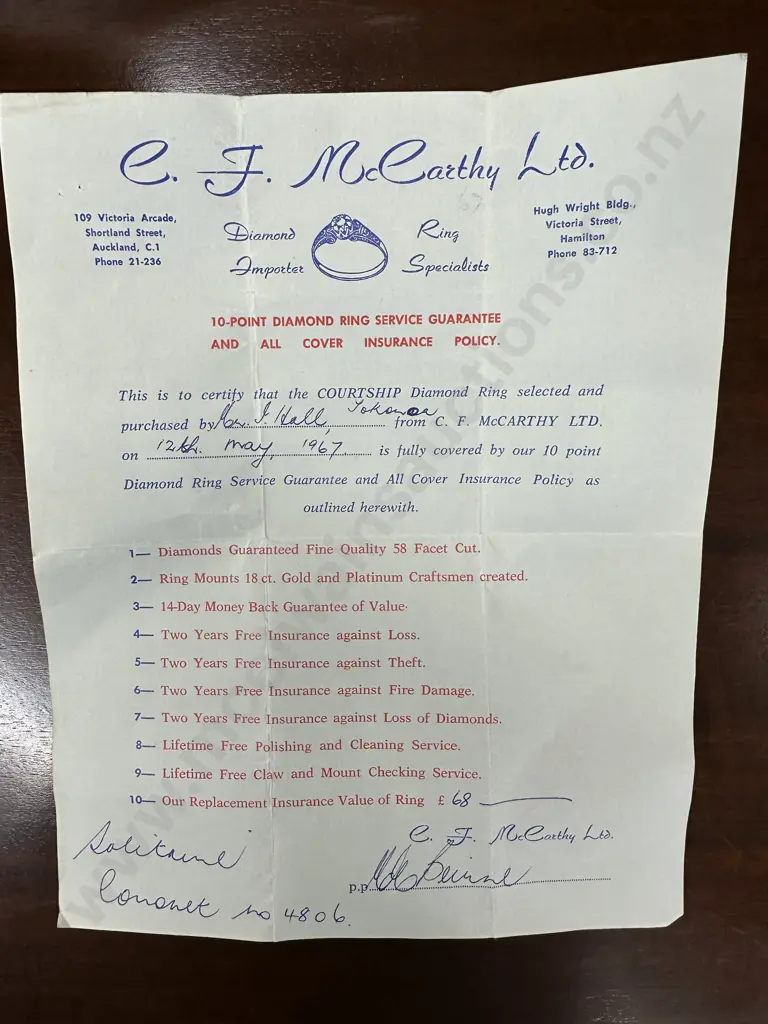 C. F. McCarthy Ltd.
109 Victoria Arcade,
Shortland Street,
Auckland, C.1
Phone 21-236
Diamond Ring
Importer Specialists
Hugh Wright Bldg.,
Victoria Street,
Hamilton
Phone 83-712
10-POINT DIAMOND RING SERVICE GUARANTEE
AND ALL COVER INSURANCE POLICY.
This is to certify that the COURTSHIP Diamond Ring selected and
purchased by Mr. J. Hall, Tokoroa from C. F. McCARTHY LTD.
on 12th. May, 1967. is fully covered by our 10 point
Diamond Ring Service Guarantee and All Cover Insurance Policy as
outlined herewith.
1— Diamonds Guaranteed Fine Quality 58 Facet Cut.
2— Ring Mounts 18 ct. Gold and Platinum Craftsmen created.
3— 14-Day Money Back Guarantee of Value.
4— Two Years Free Insurance against Loss.
5— Two Years Free Insurance against Theft.
6— Two Years Free Insurance against Fire Damage.
7— Two Years Free Insurance against Loss of Diamonds.
8— Lifetime Free Polishing and Cleaning Service.
9— Lifetime Free Claw and Mount Checking Service.
10— Our Replacement Insurance Value of Ring £ 68
C. F. McCarthy Ltd.
p.p.
Solitaire
Coronet no 4806.